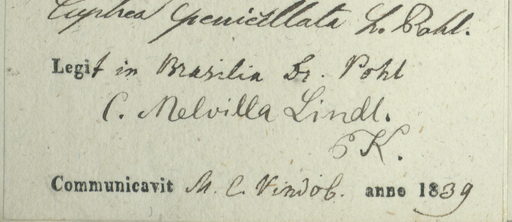 Cuphea penicellata h. Pohl.
Legit in Brasilia Dr. Pohl
C. Melvilla Lindl.
K.
Communicavit M. C. Vindob. anno 1839